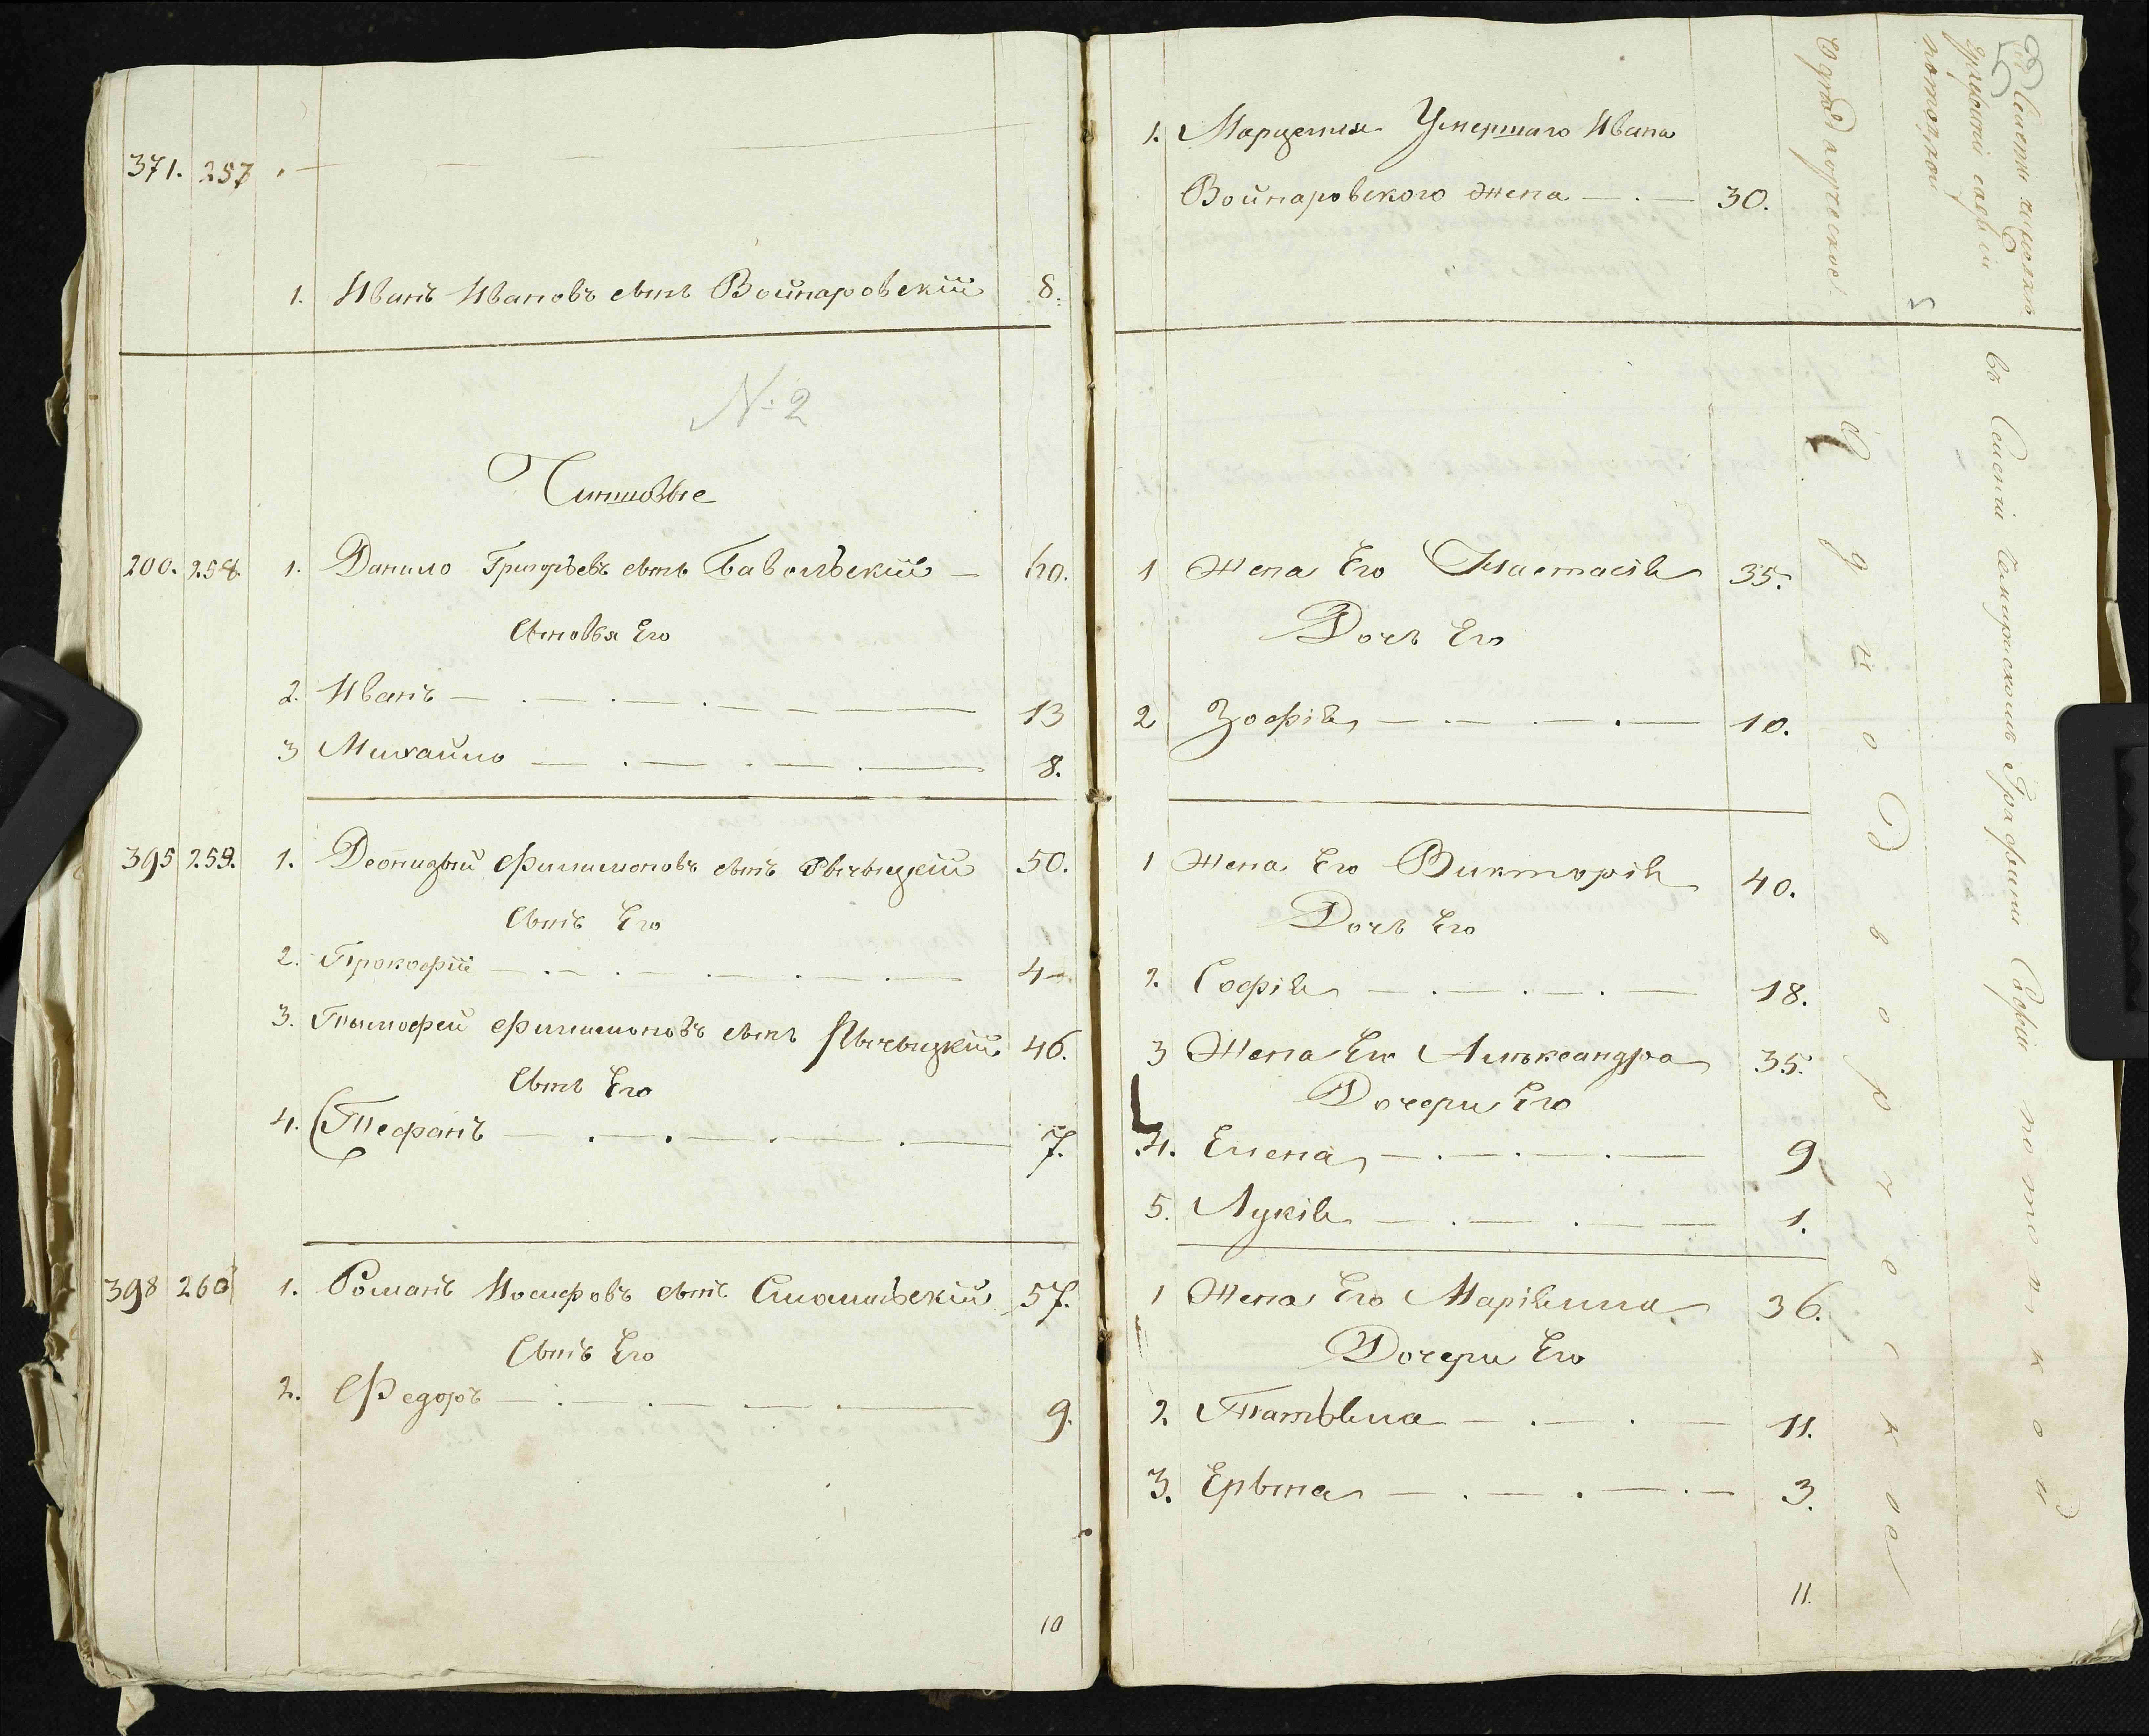 371. 257
1. Иванъ Ивановъ сынъ Войнаровскій 8.
№ 2
Чиншовые
200. 258. 1. Данило Григорьевъ сынъ Бавольскій 40.
Сыновья Его
2. Иванъ 13
3 Михайло 8.
395 259. 1. Филимоновъ сынъ 50.
Сынъ Его
2. Прокофій 4
3. Тымофей Филимоновъ сынъ 46.
Сынъ Его
4. Стефанъ 7.
398 260 1. Романъ Иосифовъ сынъ 57.
Сынъ Его
2. Федоръ 9.
10
1. Марцелия Умершаго Ивана
Войнаровского жена 30.
1 Жена Его Настасія 35.
Дочь Его
2 Зофія 10.
1 Жена Его Викторія 40.
Дочь Его
2. Софія 18.
3 Жена Его Александра 35.
Дочери Его
4. Елена 9
5. Лукія 1.
1 Жена Его Маріяна 36.
Дочери Его
2. Татьяна 11.
3. Ерына 3.
11.
Однодворческое
Однодворческое
Графини Софіи
потоцкой
5
въ Селеніи Графини Софіи потоцкой